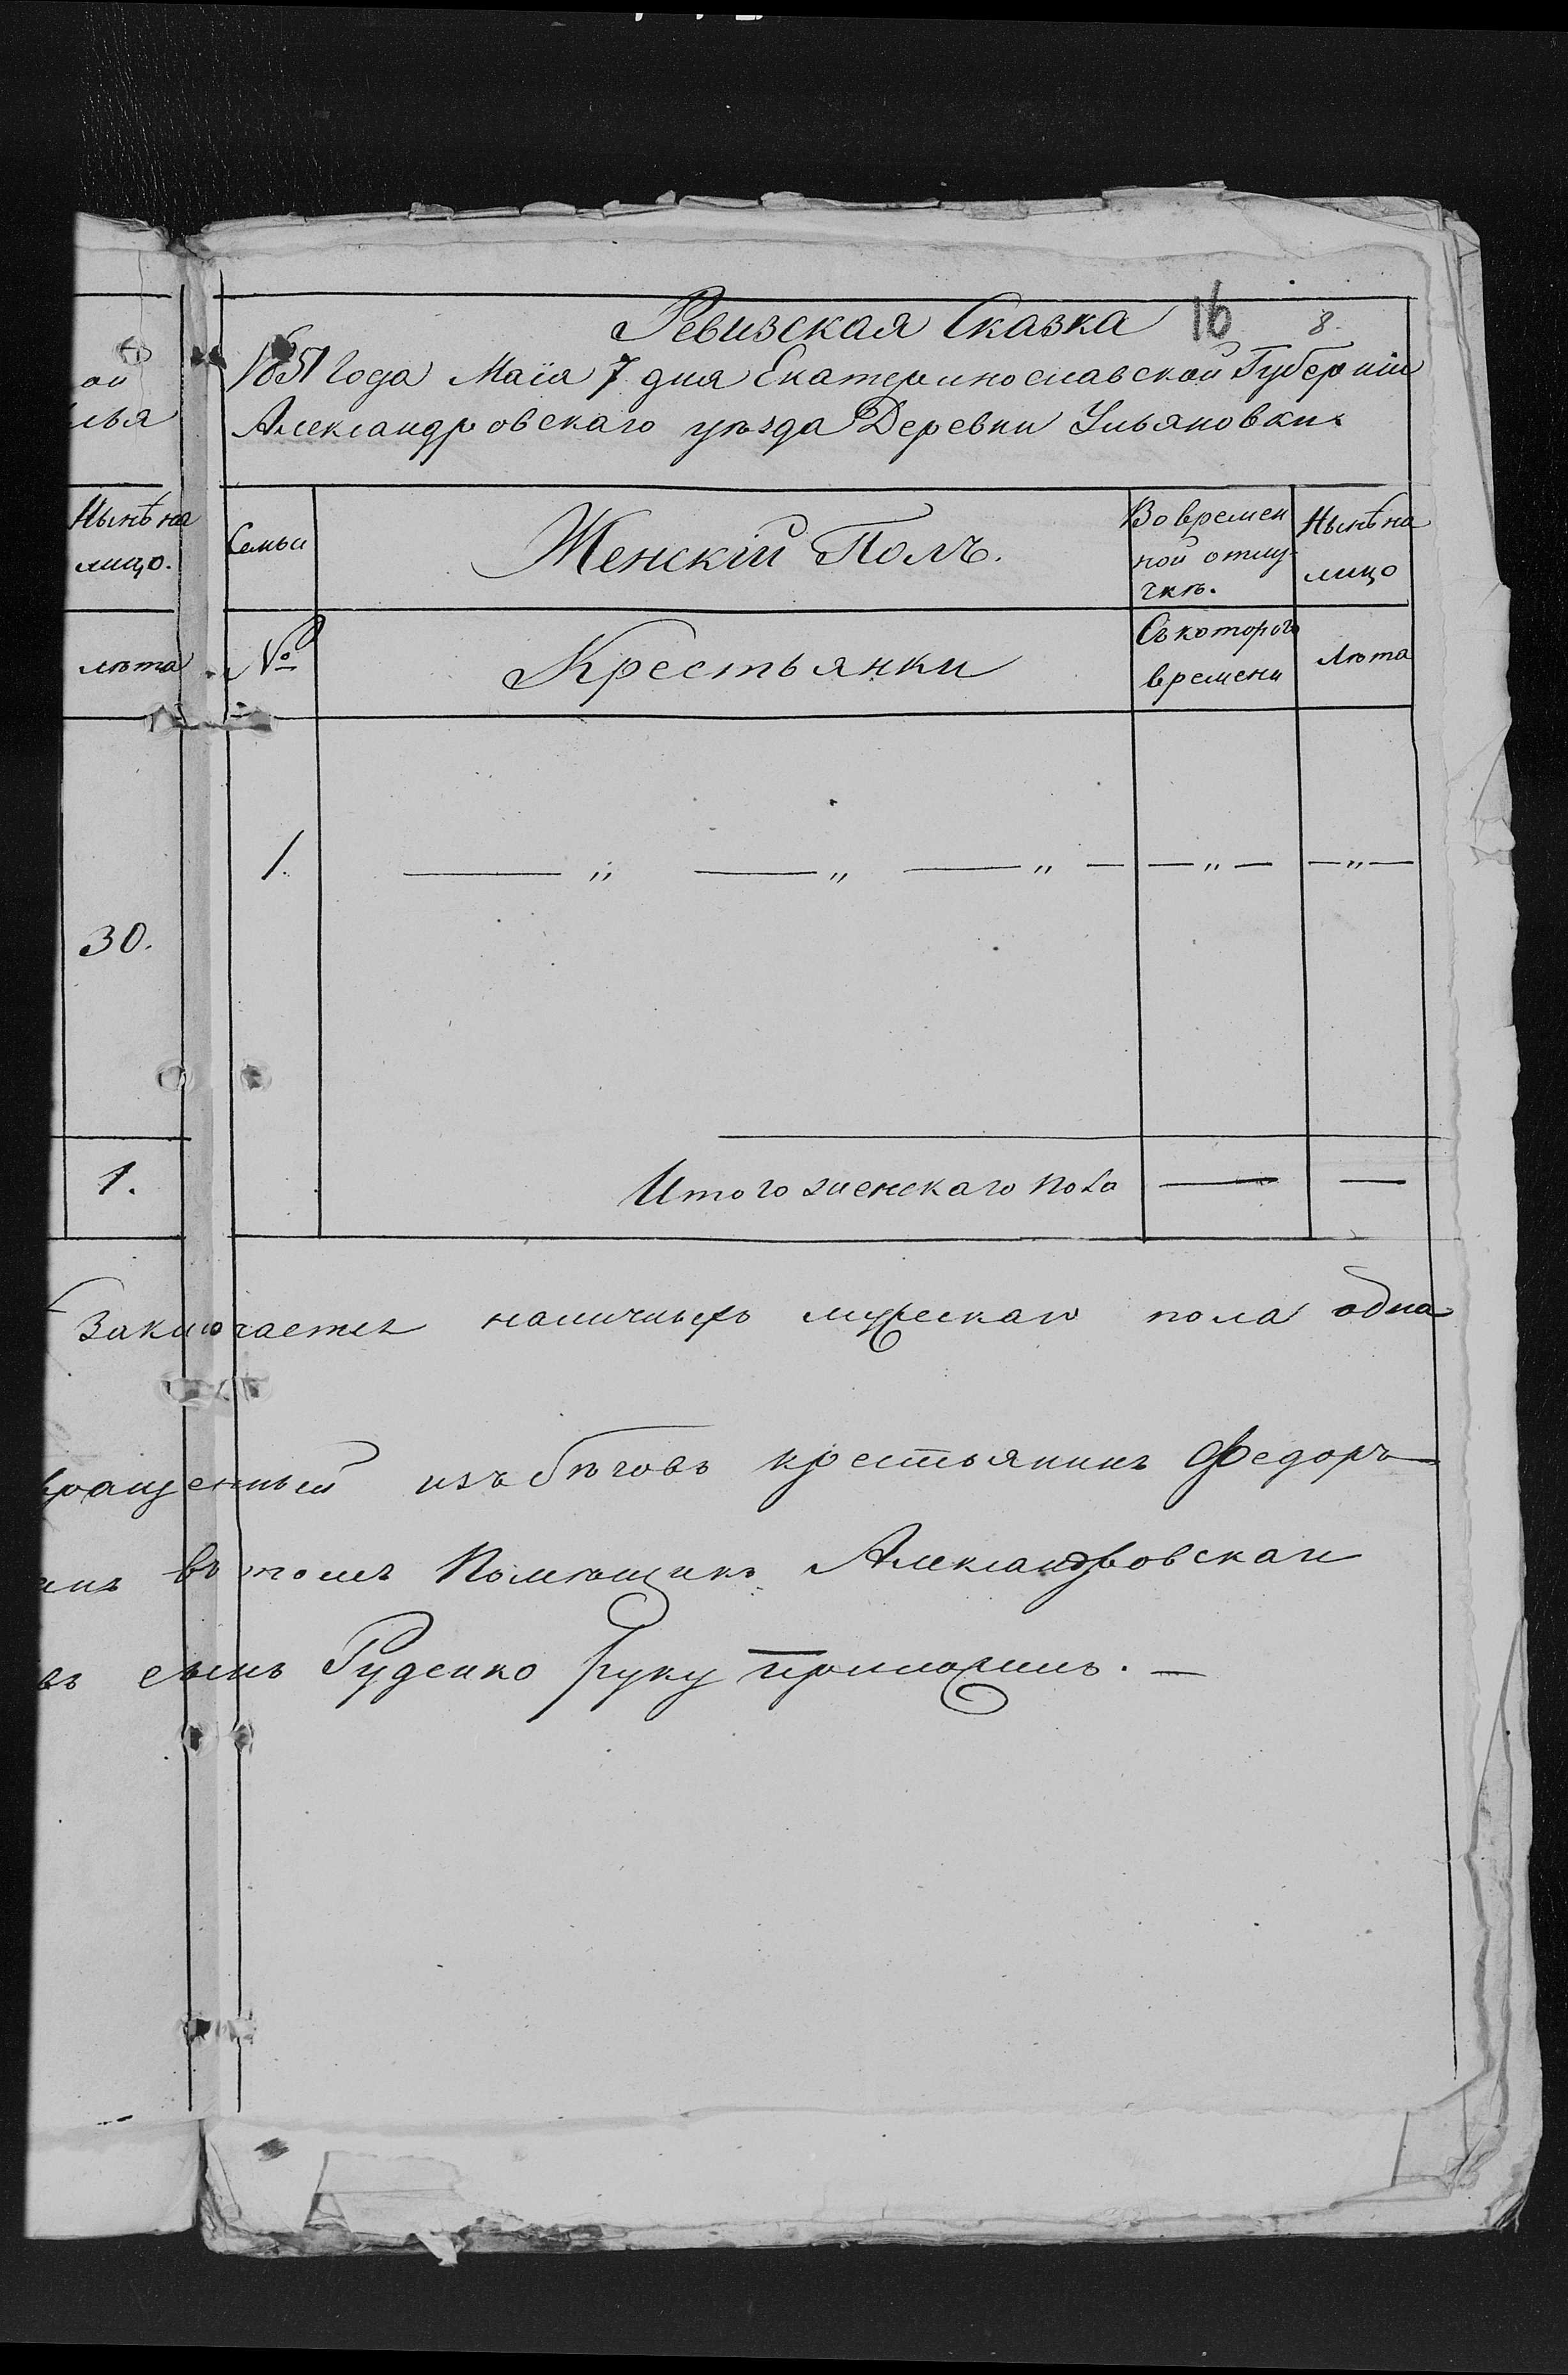 Ревизская Сказка 16 8.
1851 Года Маія 7 дня Екатеринославской Губерніи
Александровскаго уѣзда Деревни Ульяновки.
ой
лья
Нынѣ на
лицо.
лѣта
30.
1.
Семьи
Женскій Полъ.
Во времен
ной отлу-
чкѣ.
Нынѣ на
лицо
№
Крестьянки
Съ котораго
времени
Лѣта
1. — „ — „ — „ — — „ — — „ —
Итого женскаго пола — —
Заключается наличныхъ мужескаго пола одна
вращенный изъ бѣговъ крестьянинъ Федоръ
инъ въ томъ Помѣщикъ Александровскаго
въ сынъ Руденко руку приложилъ. —